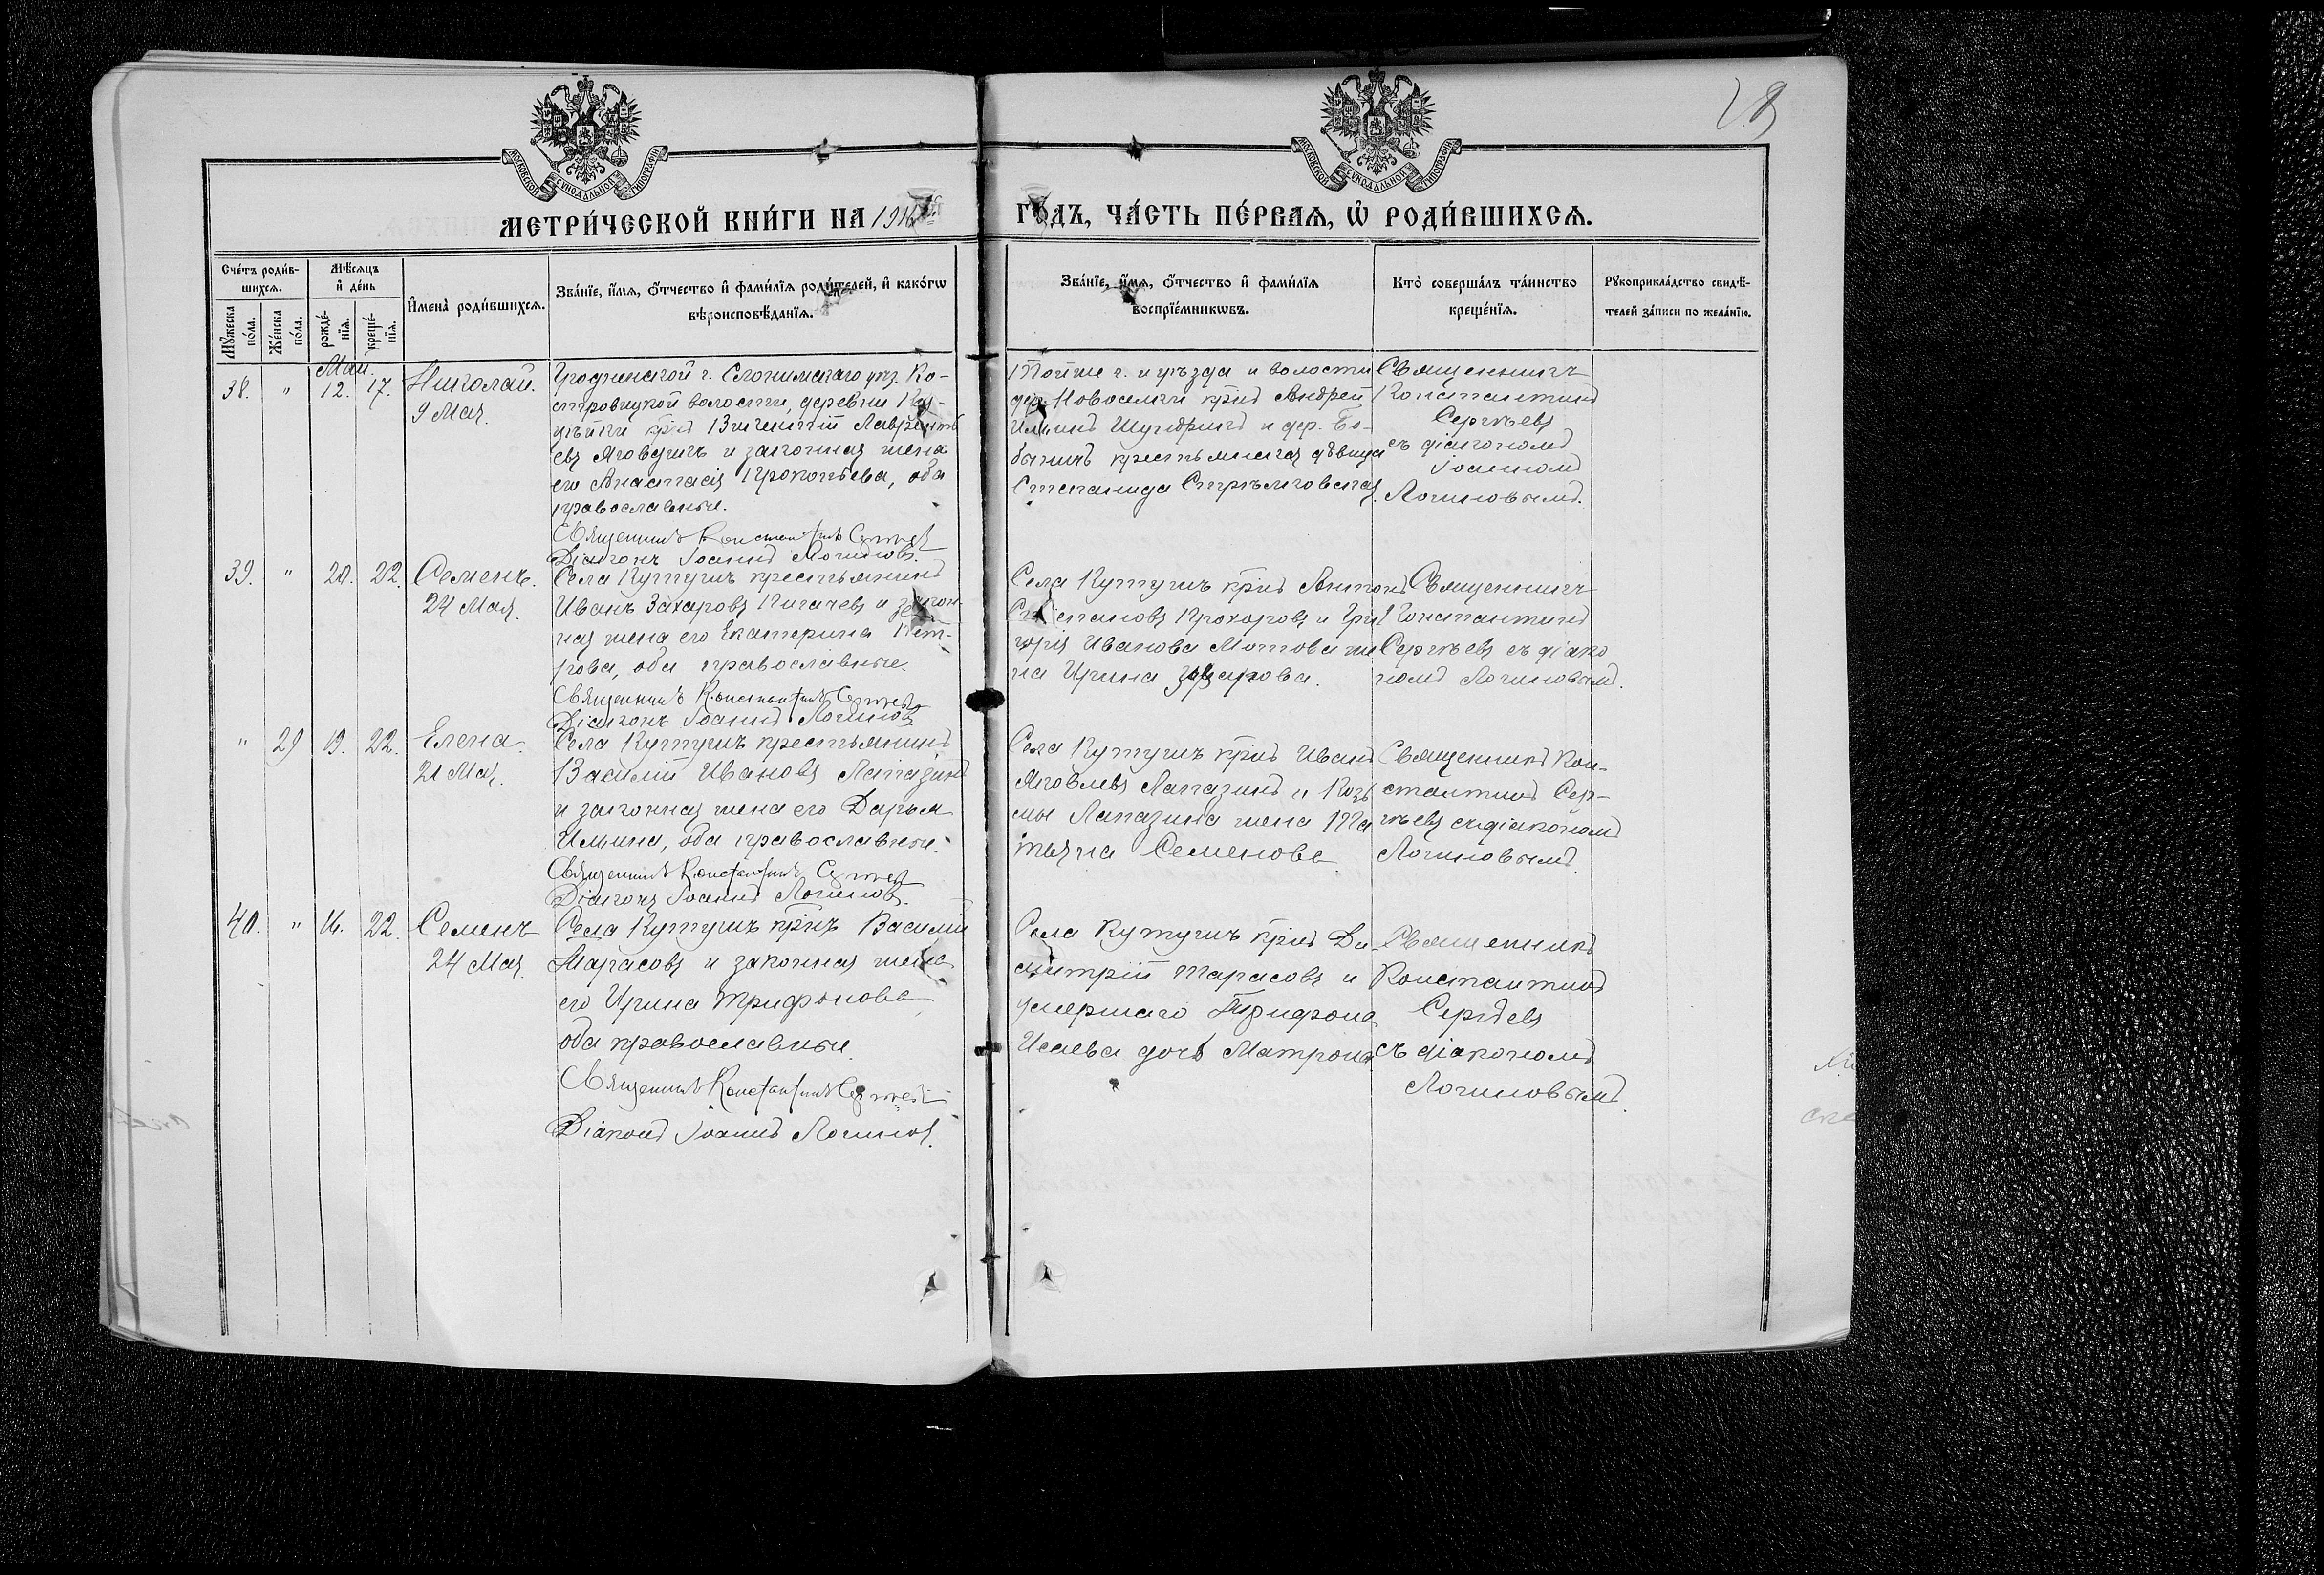 28
МОСКОВСКОЙ СѴНОДАЛЬНОЙ ТИПОГРАФІИ
МОСКОВСКОЙ СѴНОДАЛЬНОЙ ТИПОГРАФІИ
МЕТРИ́ЧЕСКОЙ КНИ́ГИ НА 1916 ГО́ДЪ, ЧА́СТЬ ПЕ́РВАѦ, Ѡ РОДИ́ВШИХСѦ.
Сче́тъ роди́в-
шихсѧ.
Мꙋ́жеска по́ла.
Же́нска по́ла.
Мѣ́сѧцъ
и҆ де́нь
рожде́-
нїѧ.
креще́-
нїѧ.
И҆мена̀ роди́вшихсѧ.
Зва́нїе, и҆́мѧ, ѻ҆́тчество и҆ фами́лїѧ роди́телей, и҆ како́гѡ
вѣроисповѣ́данїѧ.
Зва́нїе, и҆́мѧ, ѻ҆́тчество и҆ фами́лїѧ
воспрїе́мникѡвъ.
Кто̀ соверша́лъ та́инство
креще́нїѧ.
Рꙋкоприкла́дство свидѣ́-
телей за́писи по жела́нїю.
Май.
38. " 12. 17. Николай.
9 Мая.
Гродненской г. Слонимскаго уѣз. Ко-
стровицкой волости, деревни
крнъ Викентій Лаврентъ
евъ Яковчикъ и законная жена
его Анастасія Прокопьева, оба
православные.
Священникъ Константинъ Сергѣевъ
Діаконъ Іоаннъ Логиновъ.
Тойже г. и уѣзда и волости
дер. Новоселки крнъ Андрей
Ильинъ и дер. Бо-
быничъ крестьянская дѣвица
Степанида
Священникъ
Константинъ
Сергѣевъ
съ діакономъ
Іоанномъ
Логиновымъ.
39. " 20. 22. Семенъ.
24 Мая.
Села Кутушъ крестьянинъ
Иванъ Захаровъ Кигачевъ и закон-
ная жена его Екатерина Пет-
рова, оба православные.
Священникъ Константинъ Сергѣевъ
Діаконъ Іоаннъ Логиновъ
Села Кутушъ крнъ Антонъ
Степановъ Прохоровъ и Гри
горія Иванова Мотова же
на Ирина Захарова.
Священникъ
Константинъ
Сергѣевъ съ діако
номъ Логиновымъ.
" 29 19. 22. Елена.
21 Мая.
Села Кутушъ крестьянинъ
Василій Ивановъ Лапазинъ
и законная жена его Дарья
Ильина, оба православные.
Священникъ Константинъ Сергѣевъ
Діаконъ Іоаннъ Логиновъ.
Села Кутушъ крнъ Иванъ
Яковлевъ Лапазинъ и Козь
мы Лапазина жена Та
тьяна Семенова
Священникъ Кон-
стантинъ Сер-
гѣевъ съ діакономъ
Логиновымъ
40. " 16. 22. Семенъ
24 Мая.
Села Кутушъ крнъ Василій
Тарасовъ и законная жена
его Ирина Трифонова
оба православные.
Священникъ Константинъ Сергѣевъ
Діаконъ Іоаннъ Логиновъ.
Села Кутушъ крнъ Ди-
митрій Тарасовъ и
умершаго Трифона
Исаева дочь Матрона
Священникъ
Константинъ
Сергѣевъ
съ діакономъ
Логиновымъ.